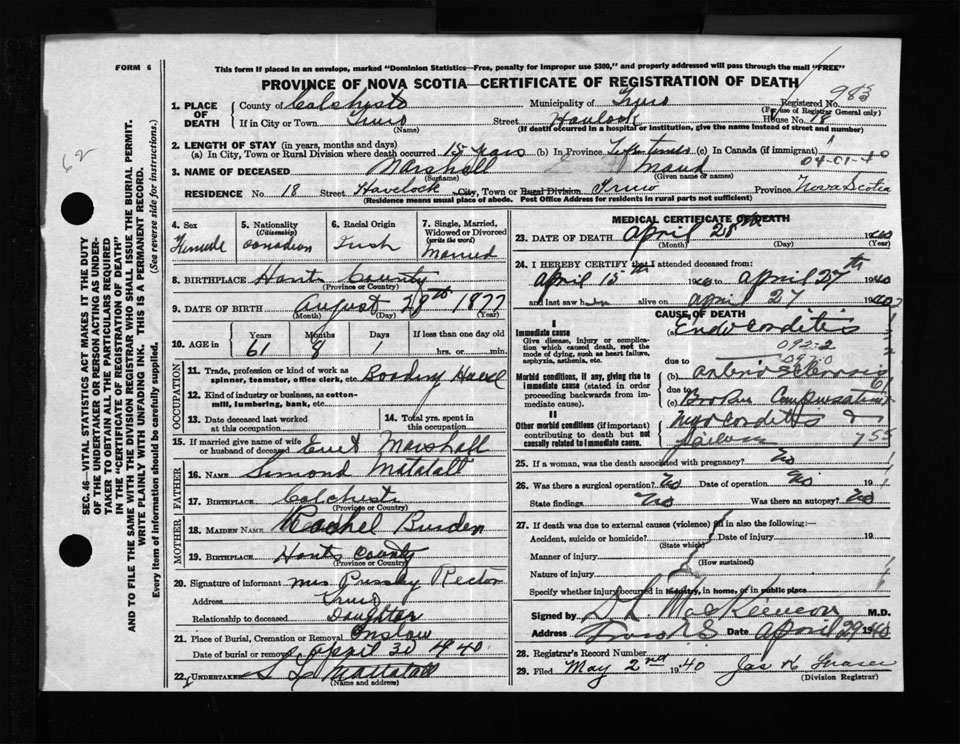 FORM 6
This form if placed in an envelope, marked "Dominion Statistics—Free, penalty for improper use $300," and properly addressed will pass through the mail "FREE"
PROVINCE OF NOVA SCOTIA—CERTIFICATE OF REGISTRATION OF DEATH
983
62
SEC. 46—VITAL STATISTICS ACT MAKES IT THE DUTY
OF THE UNDERTAKER OR PERSON ACTING AS UNDER-
TAKER TO OBTAIN ALL THE PARTICULARS REQUIRED
IN THE "CERTIFICATE OF REGISTRATION OF DEATH"
AND TO FILE THE SAME WITH THE DIVISION REGISTRAR WHO SHALL ISSUE THE BURIAL PERMIT.
WRITE PLAINLY WITH UNFADING INK. THIS IS A PERMANENT RECORD.
Every item of information should be carefully supplied. (See reverse side for instructions.)
1. PLACE OF DEATH
County of Colchester Municipality of Truro Registered No.
(For use of Registrar General only)
If in City or Town Truro Street Havelock House No. 18
(Name) (If death occurred in a hospital or institution, give the name instead of street and number)
2. LENGTH OF STAY (in years, months and days)
(a) In City, Town or Rural Division where death occurred 15 years (b) In Province Life time (c) In Canada (if immigrant)
04-01-40
3. NAME OF DECEASED Marshall Maud
(Surname) (Given name or names)
RESIDENCE No. 18 Street Havelock City, Town or Rural Division Truro Province Nova Scotia
(Residence means usual place of abode. Post Office Address for residents in rural parts not sufficient)
4. Sex Female
5. Nationality (Citizenship) Canadian
6. Racial Origin Irish
7. Single, Married, Widowed or Divorced (write the word) Married
8. BIRTHPLACE Hants County
(Province or Country)
9. DATE OF BIRTH August 28th 1877
(Month) (Day) (Year)
10. AGE in Years 61 Months 8 Days 1 If less than one day old
hrs. or min.
OCCUPATION
11. Trade, profession or kind of work as spinner, teamster, office clerk, etc.
12. Kind of industry or business, as cotton-mill, lumbering, bank, etc.
13. Date deceased last worked at this occupation
14. Total yrs. spent in this occupation
15. If married give name of wife or husband of deceased Marshall
FATHER
16. NAME Simond Matatall
17. BIRTHPLACE Colchester
(Province or Country)
MOTHER
18. MAIDEN NAME Rachel Burden
19. BIRTHPLACE Hants County
(Province or Country)
20. Signature of informant Mrs Rector
Address Truro
Relationship to deceased Daughter
21. Place of Burial, Cremation or Removal Onslow
Date of burial or removal April 30 1940
22. UNDERTAKER Mattatall
(Name and address)
MEDICAL CERTIFICATE OF DEATH
23. DATE OF DEATH April 28th 1940
(Month) (Day) (Year)
24. I HEREBY CERTIFY that I attended deceased from:
April 15th 1940 to April 27th 1940
and last saw her alive on April 27 1940
CAUSE OF DEATH
I
Immediate cause
Give disease, injury or complication which caused death, not the mode of dying, such as heart failure, asphyxia, asthenia, etc.
(a) Endocarditis
092-2
due to
Morbid conditions, if any, giving rise to immediate cause (stated in order proceeding backwards from immediate cause).
(b) Arterio Sclerosis
due to
(c) Broken Compensation
II
Other morbid conditions (if important) contributing to death but not causally related to immediate cause.
Myocarditis &
25. If a woman, was the death associated with pregnancy? No
26. Was there a surgical operation? No Date of operation No 19
State findings No Was there an autopsy? No
27. If death was due to external causes (violence) fill in also the following:—
Accident, suicide or homicide? Date of injury 19
(State which)
Manner of injury
(How sustained)
Nature of injury
Specify whether injury occurred in industry, in home, or in public place
Signed by D L MacKinnon M.D.
Address Truro N.S. Date April 29 1940
28. Registrar's Record Number
29. Filed May 2nd 1940 Jas H Fraser
(Division Registrar)